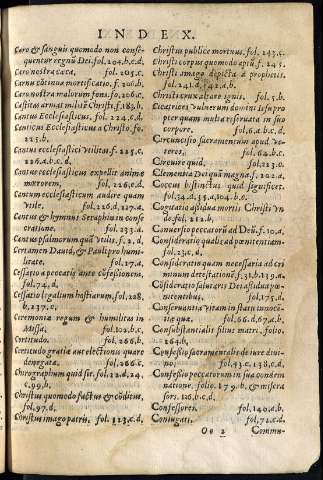 INDEX.
Caro & sanguis quomodo non conse-
quentur regnũ Dei. fol. 204. b. c. d.
Caro nostra cæca, fol. 205. c.
Carnis continua mortificatio. f. 200. b.
Caro nostra malorum fons. fo, 206. c.
Castitas armat milites Christi. f. 183, b.
Cantus Ecclesiasticus. fol. 224. c. d.
Canticũ Ecclesiasticũ a Christo. fo.
225. b.
Cantus ecclesiastici vtilitas. f. 225. c.
226. a. b. c. d.
Cantus ecclesiasticus expellit animæ
mærorem, fol. 226. c. d.
Cantum ecclesiasticum audire quam
vtile. fol. 226. d. 227. a.
Cantus & hymnus Seraphin in conse
cratione. fol. 233. a.
Cantus psalmorum quã vtilis. f. 2. d.
Certamen Dauid, & Pauli pro humi-
litate. fol. 17. d.
Cessatio a peccatis ante cõfessionem,
fol, 74, d,
Cessatio legalium hostiarum, fol, 228,
b. 237, c,
Ceremonia regum & humilitas in
Missa, fol. 102. b. c,
Certitudo. fol, 266. b.
Certitudo gratiæ aut electionis quare
denegata, fol. 266. c.
Chirographum quid sit. fol. 22. d. 24.
c. 99, b,
Christus quomodo factus & cõditus,
fol, 97, d,
Christus imago patris, fol. 123. c. d,
Christus publice mortuus. fol. 243. c.
Christi corpus quomodo apti⁹. f. 245.
Christi imago depicta a prophetis.
fol. 241. d, 242. a. b.
Christianus altare ignis. fol. 5. b.
Cicatrices vulnerum domini Iesu pro
pter quam multa reseruata in suo
corpore. fol, 6, a. b. c, d.
Circuncisio sacramentum apud ve-
teres. fol, 62. b. c.
Circuire quid, fol, 223. b.
Clementia Dei quam magna. f. 202. a.
Coccus bis tinctus quid significet.
fol. 34. d, 35, a, 104. b. c.
Cogitatio assidua mortis Christi vn
de. fol, 212. b.
Conuersio peccatoris ad Deũ. f. 10. a.
Consideratio qualis ad pœnitentiam
fol. 23, c, d.
Consideratio quam necessaria ad cri
minum detestationẽ f, 31, b, 139, a.
Cõsideratio salutaris Dei assidua pœ-
nitentibus, fol, 175, d.
Conseruantia vitam in statu innocẽ-
tiæ quæ, fol. 66. d. 67, a. b.
Consubstantialis filius matri. folio.
264. b,
Confessio sacramentalis de iure diui-
no, fol, 43, c. 138, c, d.
Confessio peccatorum in sua condem
natione. folio. 179. b, & misera
sors. 126, b. c, d,
Confessores. fol, 140. a. b.
Coniugati, fol, 72, c, d,
Oo 2 Commu-